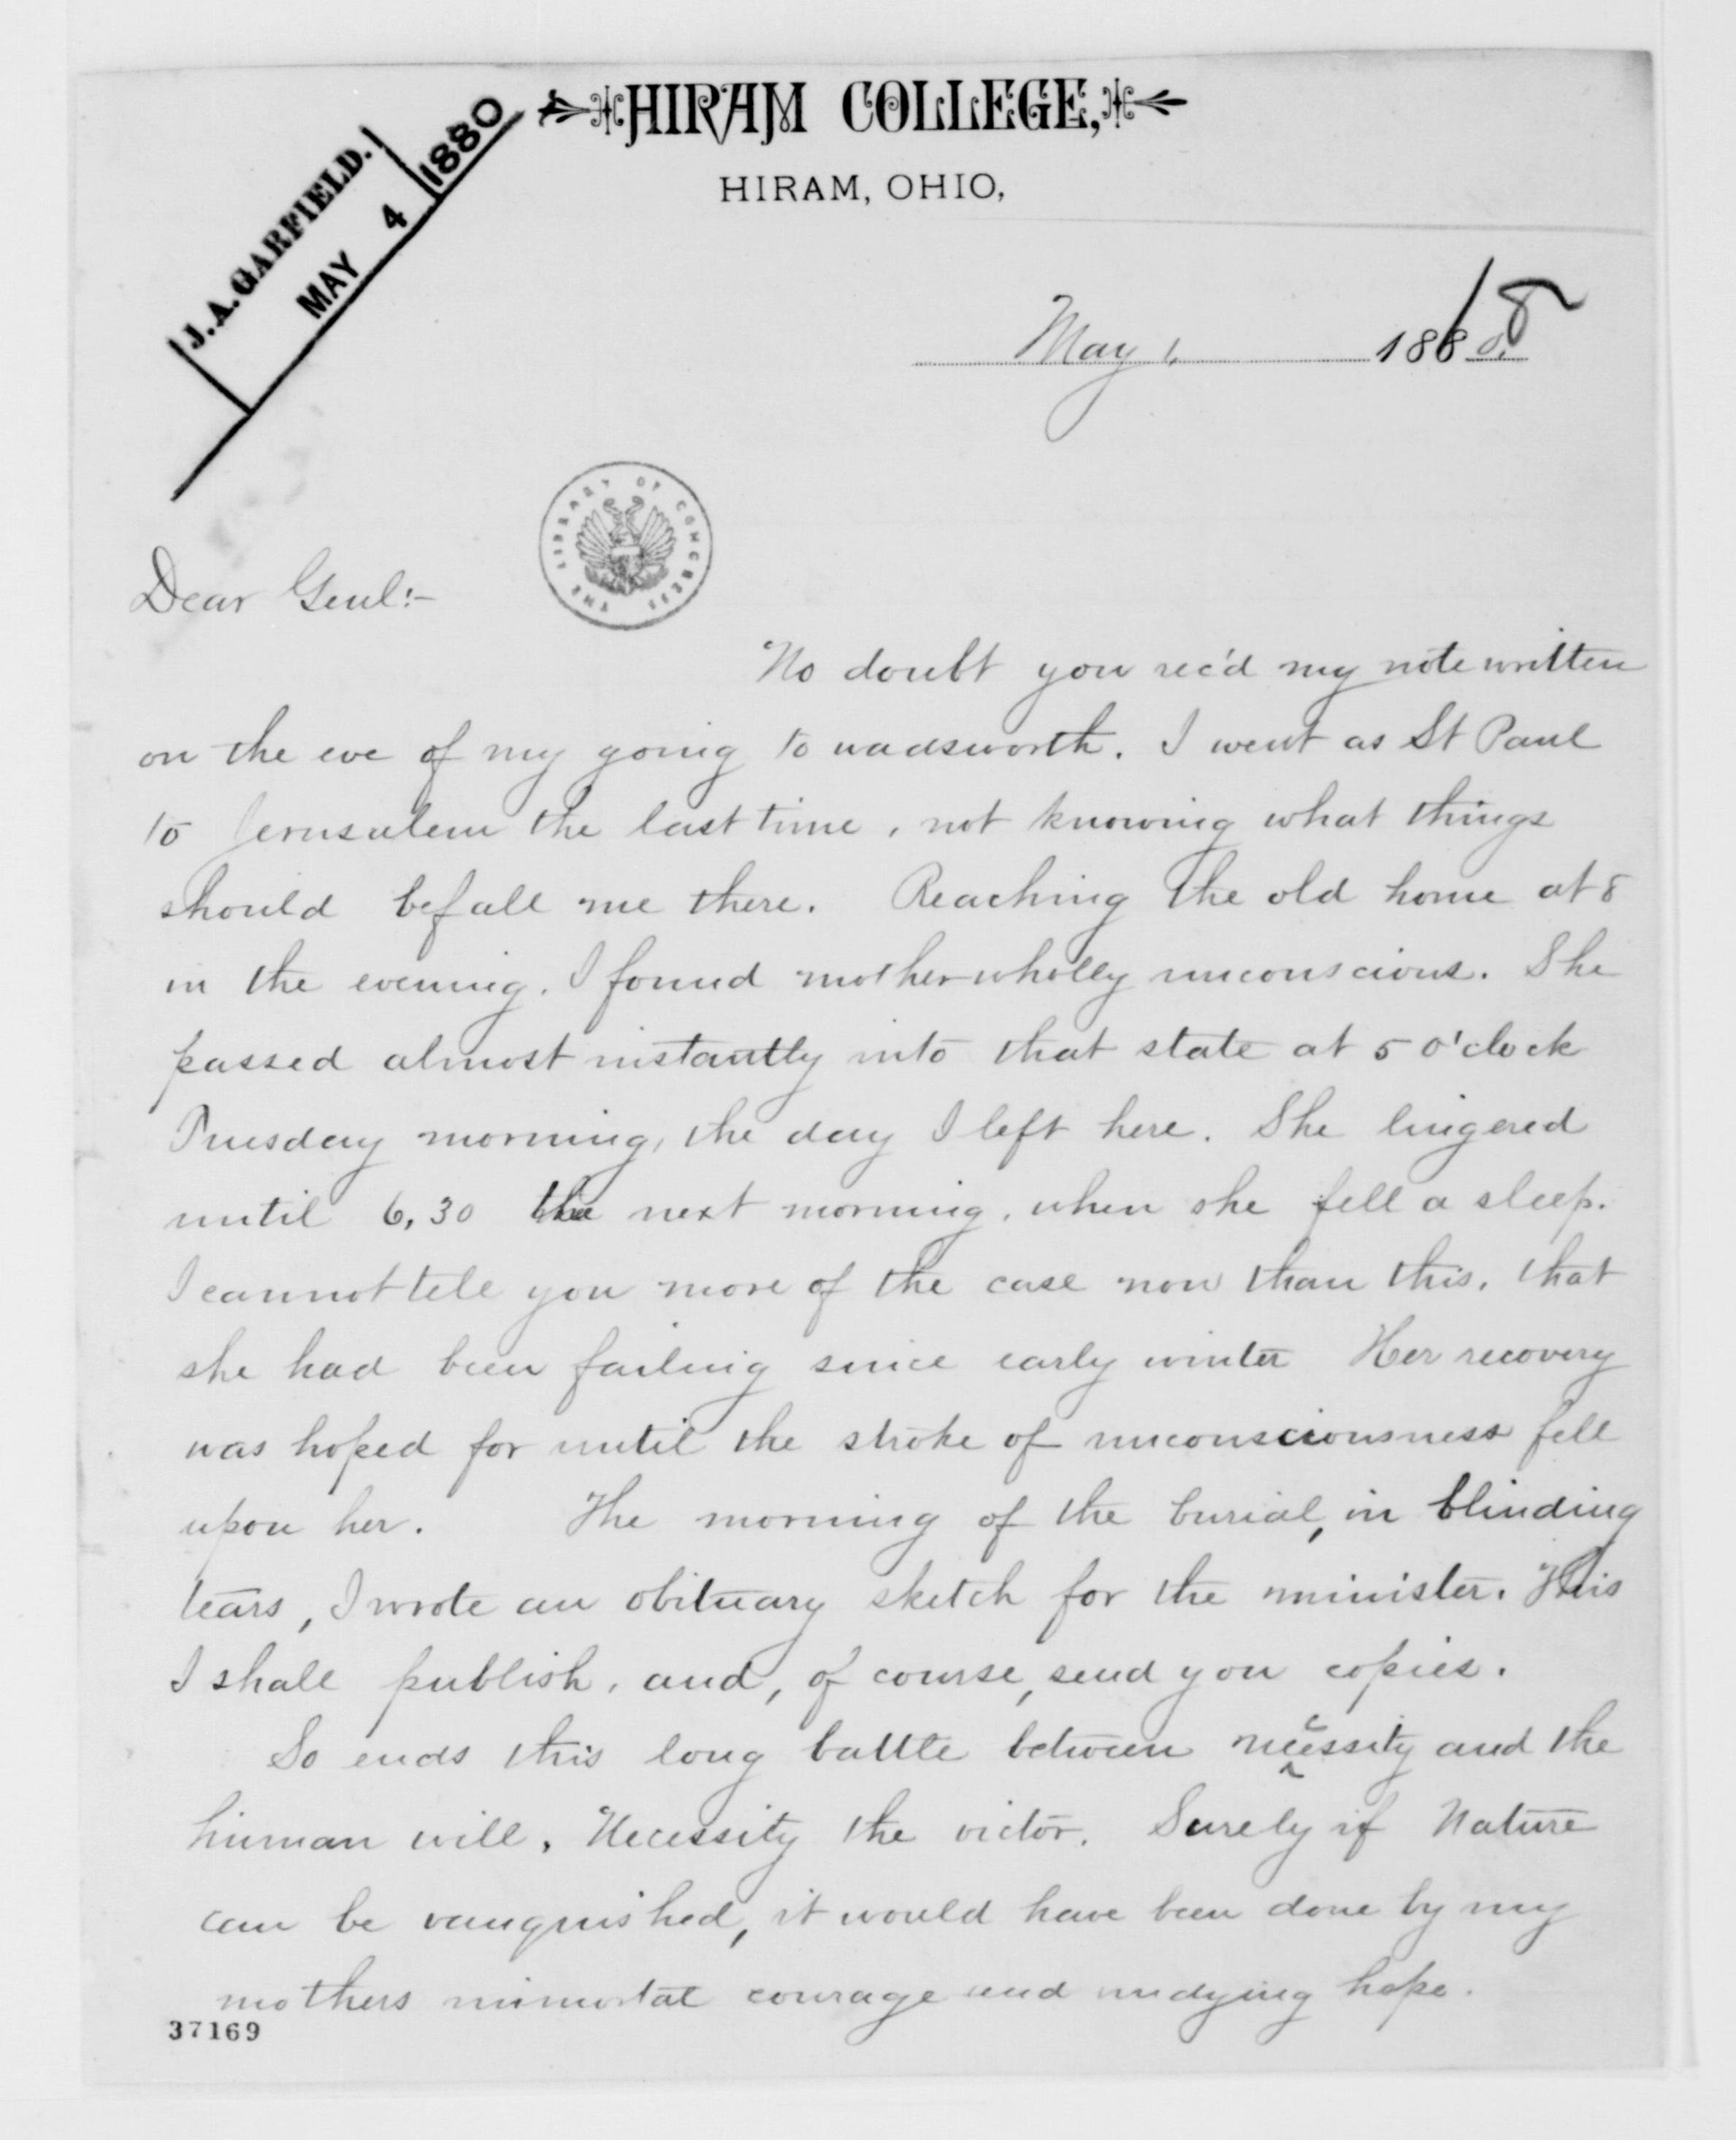 HIRAM COLLEGE,
HIRAM, OHIO,
J. A. GARFIELD.
MAY 4 1880
May 1, 1880.
THE LIBRARY OF CONGRESS
Dear Genl:-
No doubt you rec'd my note written
on the eve of my going to wadsworth. I went as St Paul
to Jerusalem the last time, not knowing what things
should befall me there. Reaching the old home at 8
in the evening, I found mother wholly unconscious. She
passed almost instantly into that state at 5 o'clock
Tuesday morning, the day I left here. She lingered
until 6,30 the next morning, when she fell a sleep.
I cannot tell you more of the case now than this, that
she had been failing since early winter Her recovery
was hoped for until the stroke of unconsciousness fell
upon her. The morning of the burial, in blinding
tears, I wrote an obituary sketch for the minister. This
I shall publish, and, of course, send you copies.
So ends this long battle between necessity and the
human will, Necessity the victor. Surely if Nature
can be vanquished, it would have been done by my
mothers immortal courage and undying hope.
37169